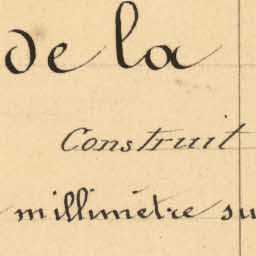 de la
Construit
millimètre su